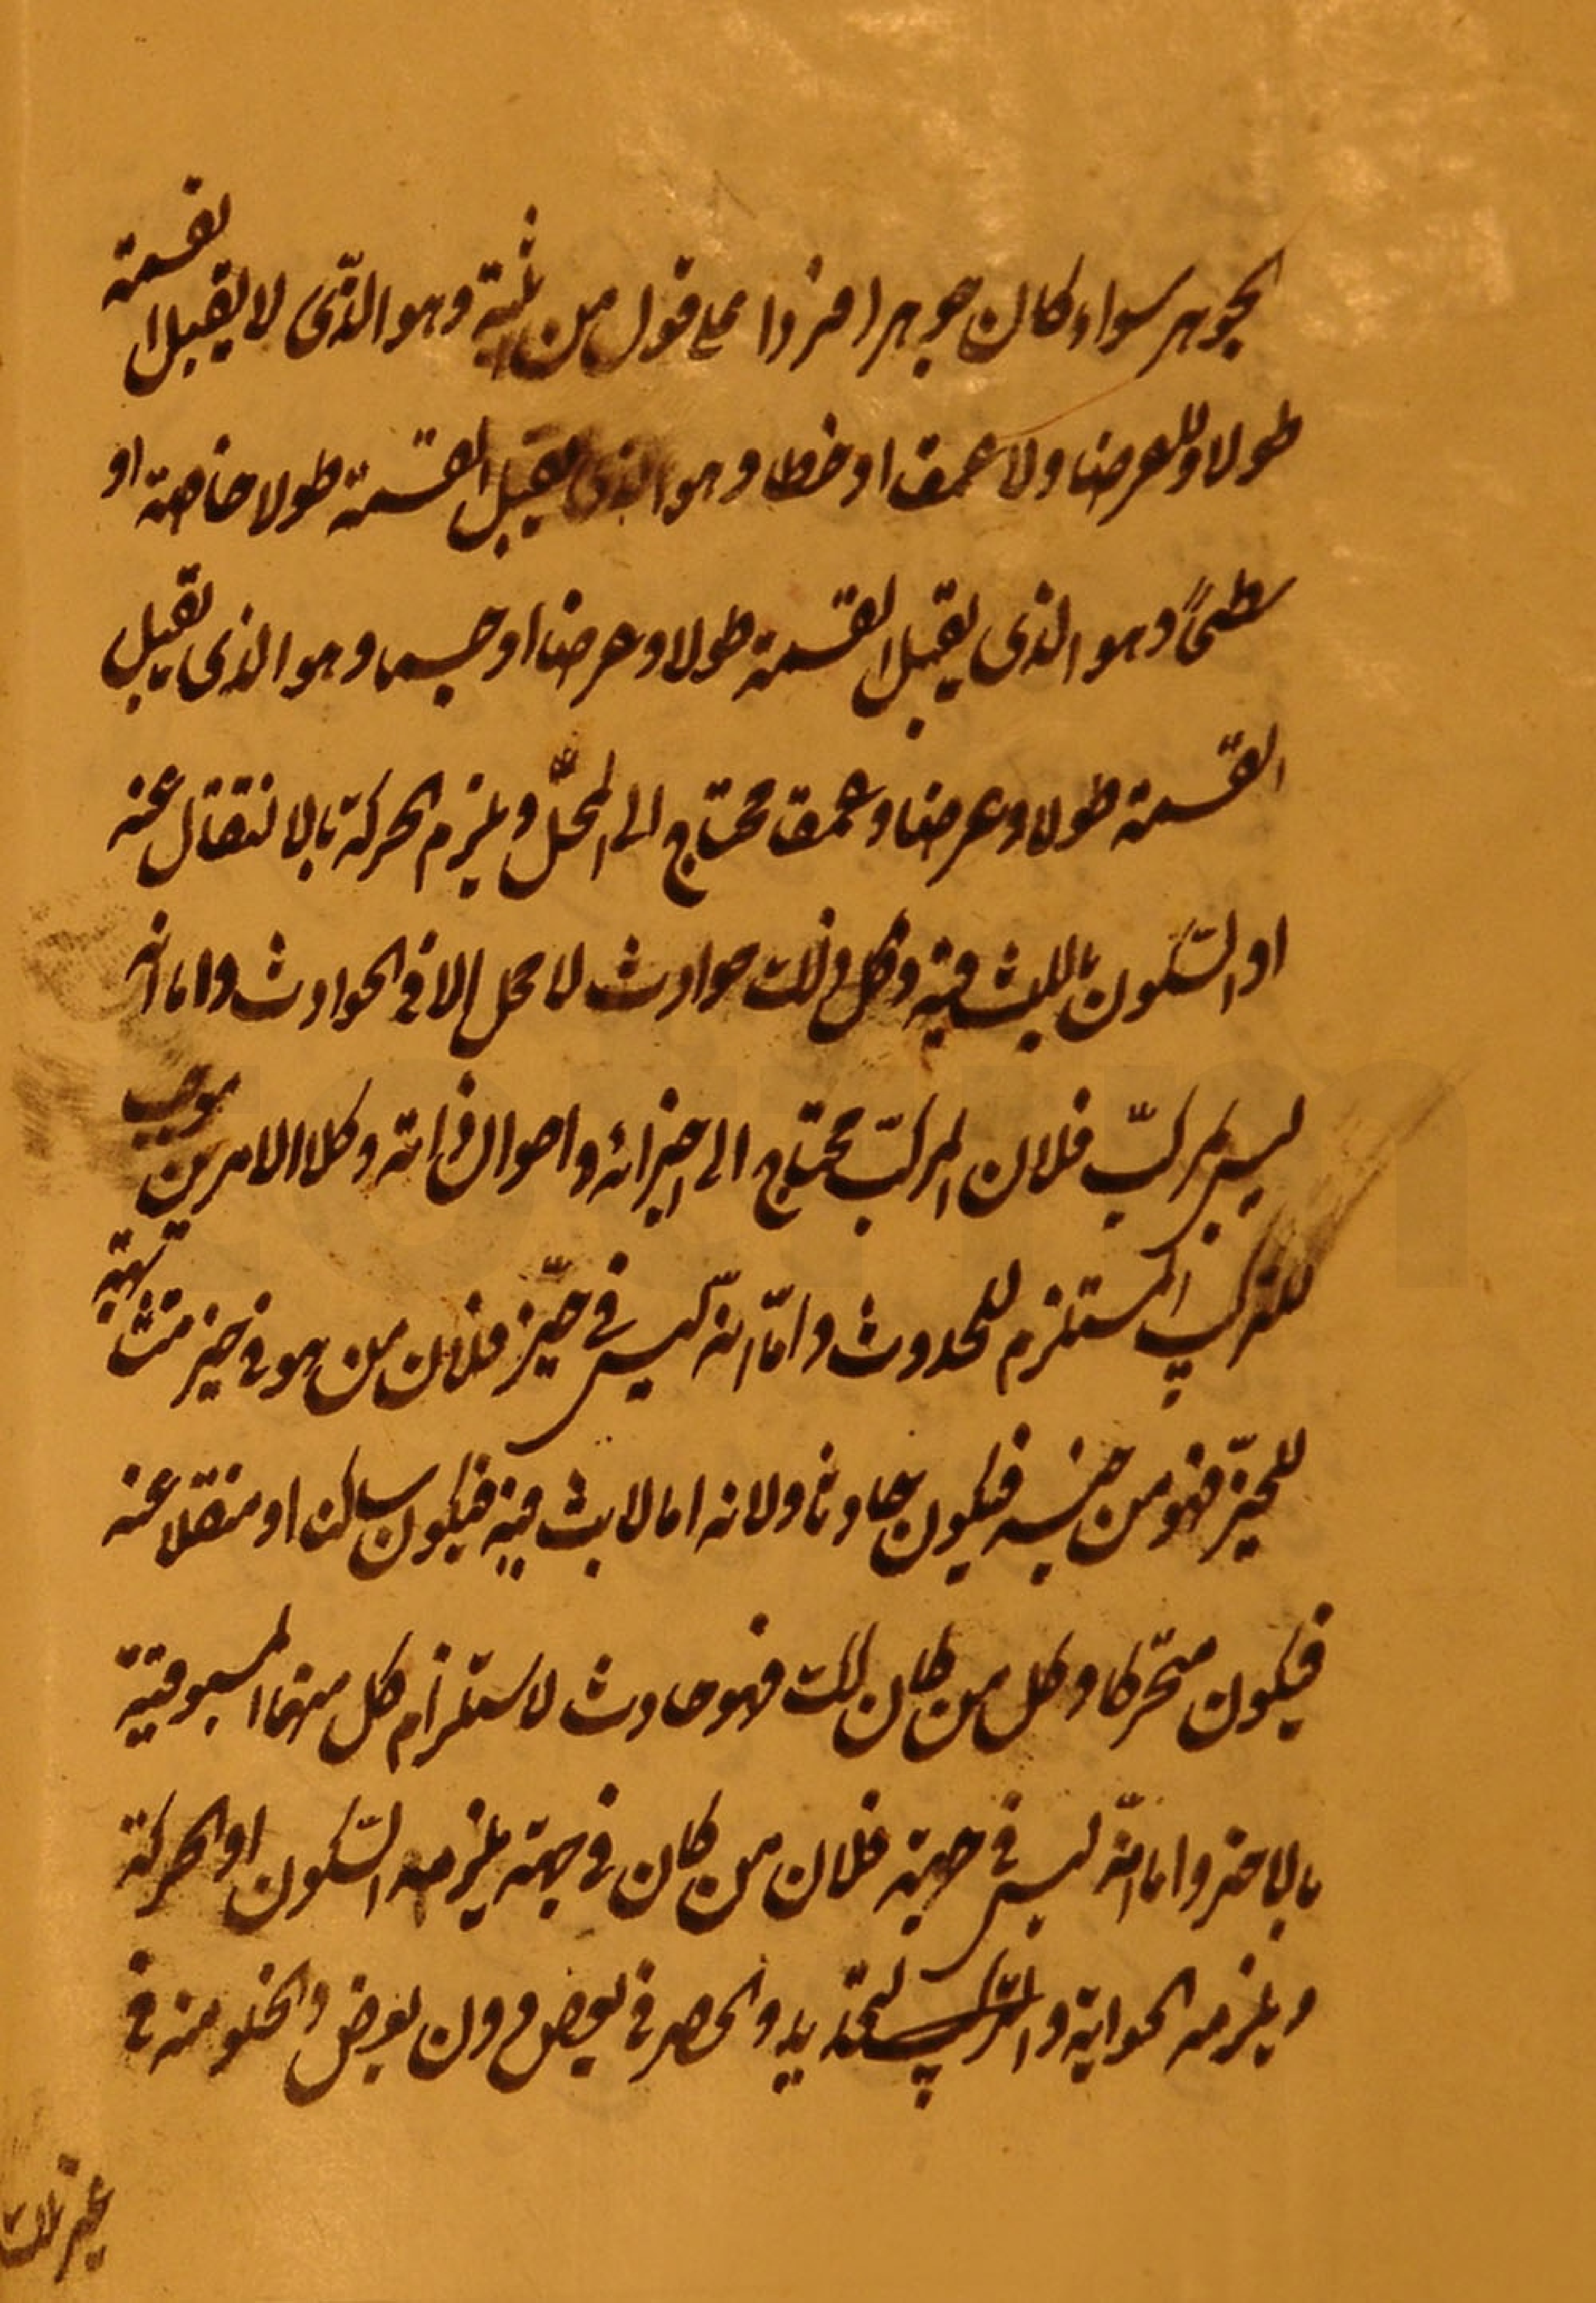 الجوهر سواء كان جوهرا فردا على قول من يثبته وهو الذّى لا يقبل القسمة
طولا ولا عرضا ولا عمقا او خطا وهو الذى يقبل القسمة طولا خاصة او
سطحاً وهو الذى يقبل القسمة طولا وعرضا او جسما وهو الذى يقبل
القسمة طولا وعرضا وعمقا محتاج الى المحلّ ويلزم الحركة بالانتقال عنه
او السّكون باللبث فيه وكل ذلك حوادث لا محل الا فى الحوادث واما انه
ليس بمركبّ فلان المركبّ محتاج الى اجزائه واحوال ذاته وكلا الامرين موجب
للتركيب المستلزم للحدوث وامّا انّه ليس فى حيّز فلان من هو فى حيز مشابهته
للحيّز فهو من جنسه فيكون حادثا ولانه اما لابث فيه فيكون ساكنا او منتقلا عنه
فيكون متحّركا وكل من كان كذلك فهو حادث لاستلزام كل منهما المسبوقية
بالاخر واما انّه ليس فى جهة فلان من كان فى جهة يلزمه السّكون او الحركة
ويلزمه الحواية والتركيب لتحديد والحصر فى بعض دون بعض والخلو منه فى
غير تلك